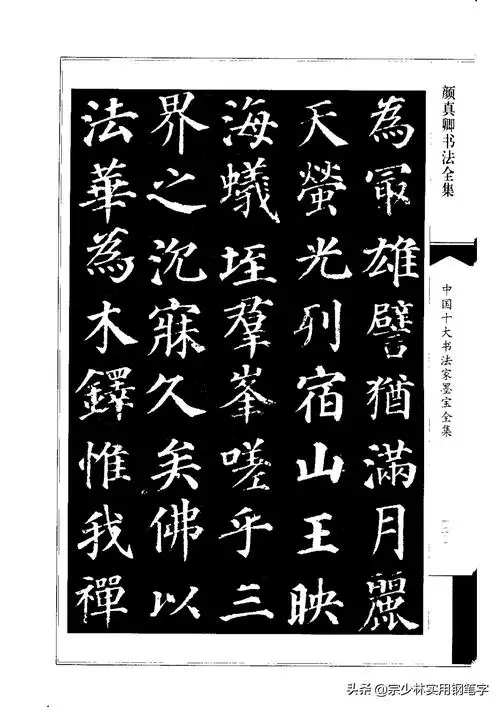 颜真卿书法全集
中国十大书法家墨宝全集
為冣雄譬猶滿月麗
天螢光列宿山王映
海蟻垤羣峯嗟乎三
界之沉寐久矣佛以
法華為木鐸惟我禪
头条@宗少林实用钢笔字